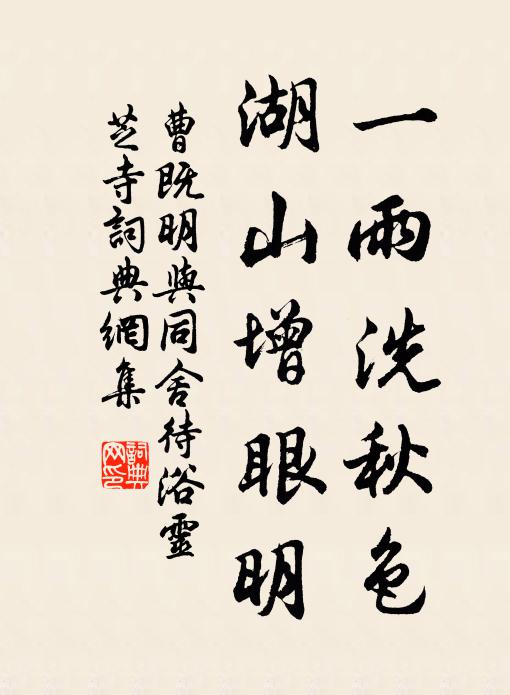 一雨洗秋色
湖山增眼明
曹既明與同舍待浴靈
芝寺詞典網集
詞典網印